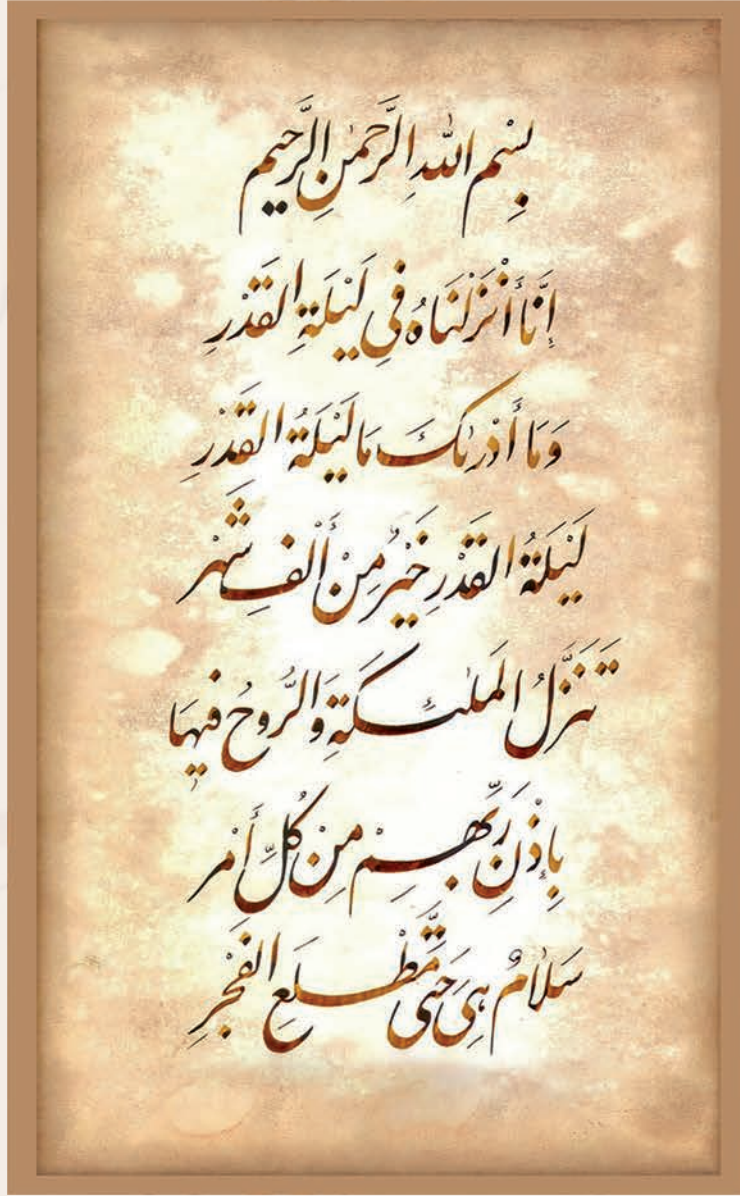 بِسْمِ اللهِ الرَّحْمٰنِ الرَّحِیمِ
إِنَّا أَنْزَلْنَاهُ فِي لَيْلَةِ القَدْرِ
وَمَا أَدْرٰىكَ مَا لَيْلَةُ القَدْرِ
لَيْلَةُ القَدْرِ خَيْرٌ مِنْ أَلْفِ شَهْر
تَنَزَّلُ المَلٰئِكَةِ وَالرُّوحُ فيهَا
بِإِذْنِ رَبِّهِمْ مِنْ كُلِّ أَمْر
سَلٰامٌ هِيَ حَتّٰى مَطْلَعِ الفَجْرِ